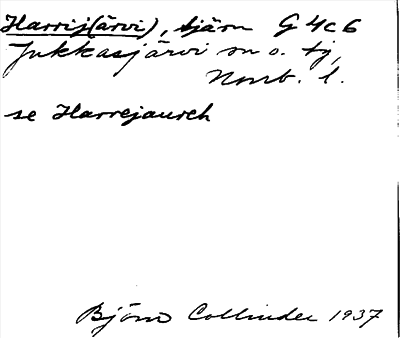 Harrij(ärvi), tjärn G4c6
Jukkasjärvi sn o. tg,
Norrb. l.
se Harrejaurch
Björn Collinder 1937